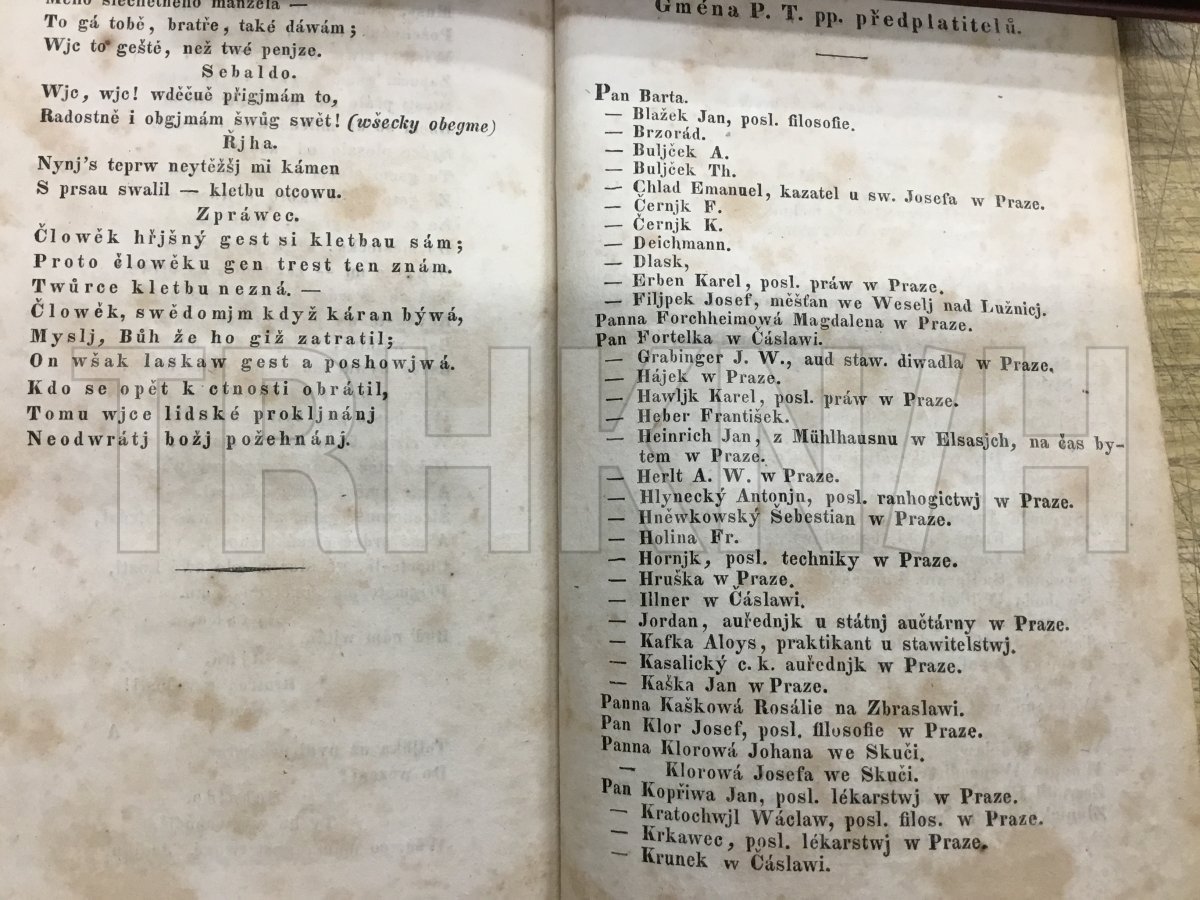 Mého šlechetného manžela —
To gá tobě, bratře, také dáwám;
Wjc to geště, než twé penjze.
Sebaldo.
Wjc, wjc! wděčuě přigjmám to,
Radostně i obgjmám šwůg swět! (wšecky obegme)
Řjha.
Nynj's teprw neytěžšj mi kámen
S prsau swalil — kletbu otcowu.
Zpráwec.
Člowěk hřjšný gest si kletbau sám;
Proto člowěku gen trest ten znám.
Twůrce kletbu nezná. —
Člowěk, swědomjm když káran býwá,
Myslj, Bůh že ho giž zatratil;
On wšak laskaw gest a poshowjwá.
Kdo se opět k ctnosti obrátil,
Tomu wjce lidské prokljnánj
Neodwrátj božj požehnánj.
Gména P. T. pp. předplatitelů.
Pan Barta.
— Blažek Jan, posl. filosofie.
— Brzorád.
— Buljček A.
— Buljček Th.
— Chlad Emanuel, kazatel u sw. Josefa w Praze.
— Černjk F.
— Černjk K.
— Deichmann.
— Dlask,
— Erben Karel, posl. práw w Praze.
— Filjpek Josef, měšťan we Weselj nad Lužnicj.
Panna Forchheimowá Magdalena w Praze.
Pan Fortelka w Čáslawi.
— Grabinger J. W., aud staw. diwadla w Praze.
— Hájek w Praze.
— Hawljk Karel, posl. práw w Praze.
— Heber František.
— Heinrich Jan, z Mühlhausnu w Elsasjch, na čas by-
tem w Praze.
— Herlt A. W. w Praze.
— Hlynecký Antonjn, posl. ranhogictwj w Praze.
— Hněwkowský Šebestian w Praze.
— Holina Fr.
— Hornjk, posl. techniky w Praze.
— Hruška w Praze.
— Illner w Čáslawi.
— Jordan, auřednjk u státnj aučtárny w Praze.
— Kafka Aloys, praktikant u stawitelstwj.
— Kasalický c. k. auřednjk w Praze.
— Kaška Jan w Praze.
Panna Kaškowá Rosálie na Zbraslawi.
Pan Klor Josef, posl. filosofie w Praze.
Panna Klorowá Johana we Skuči.
— Klorowá Josefa we Skuči.
Pan Kopřiwa Jan, posl. lékarstwj w Praze.
— Kratochwjl Wáclaw, posl. filos. w Praze.
— Krkawec, posl. lékarstwj w Praze.
— Krunek w Čáslawi.
TRHKNIH